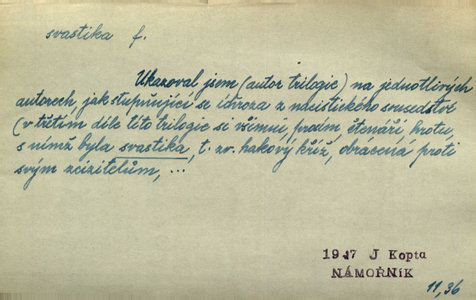 svastika f.
Ukazoval jsem (autor trilogie) na jednotlivých
autorech, jak stupňující se hrůza z nacistického sousedství
(v třetím díle této trilogie si všimnú, prosím, čtenáři, hrotu,
s nímž byla svastika, t. zv. hakový kříž, obrácená proti
svým zcizitelům, ...
1947 J Kopta
NÁMOŘNÍK
11,36